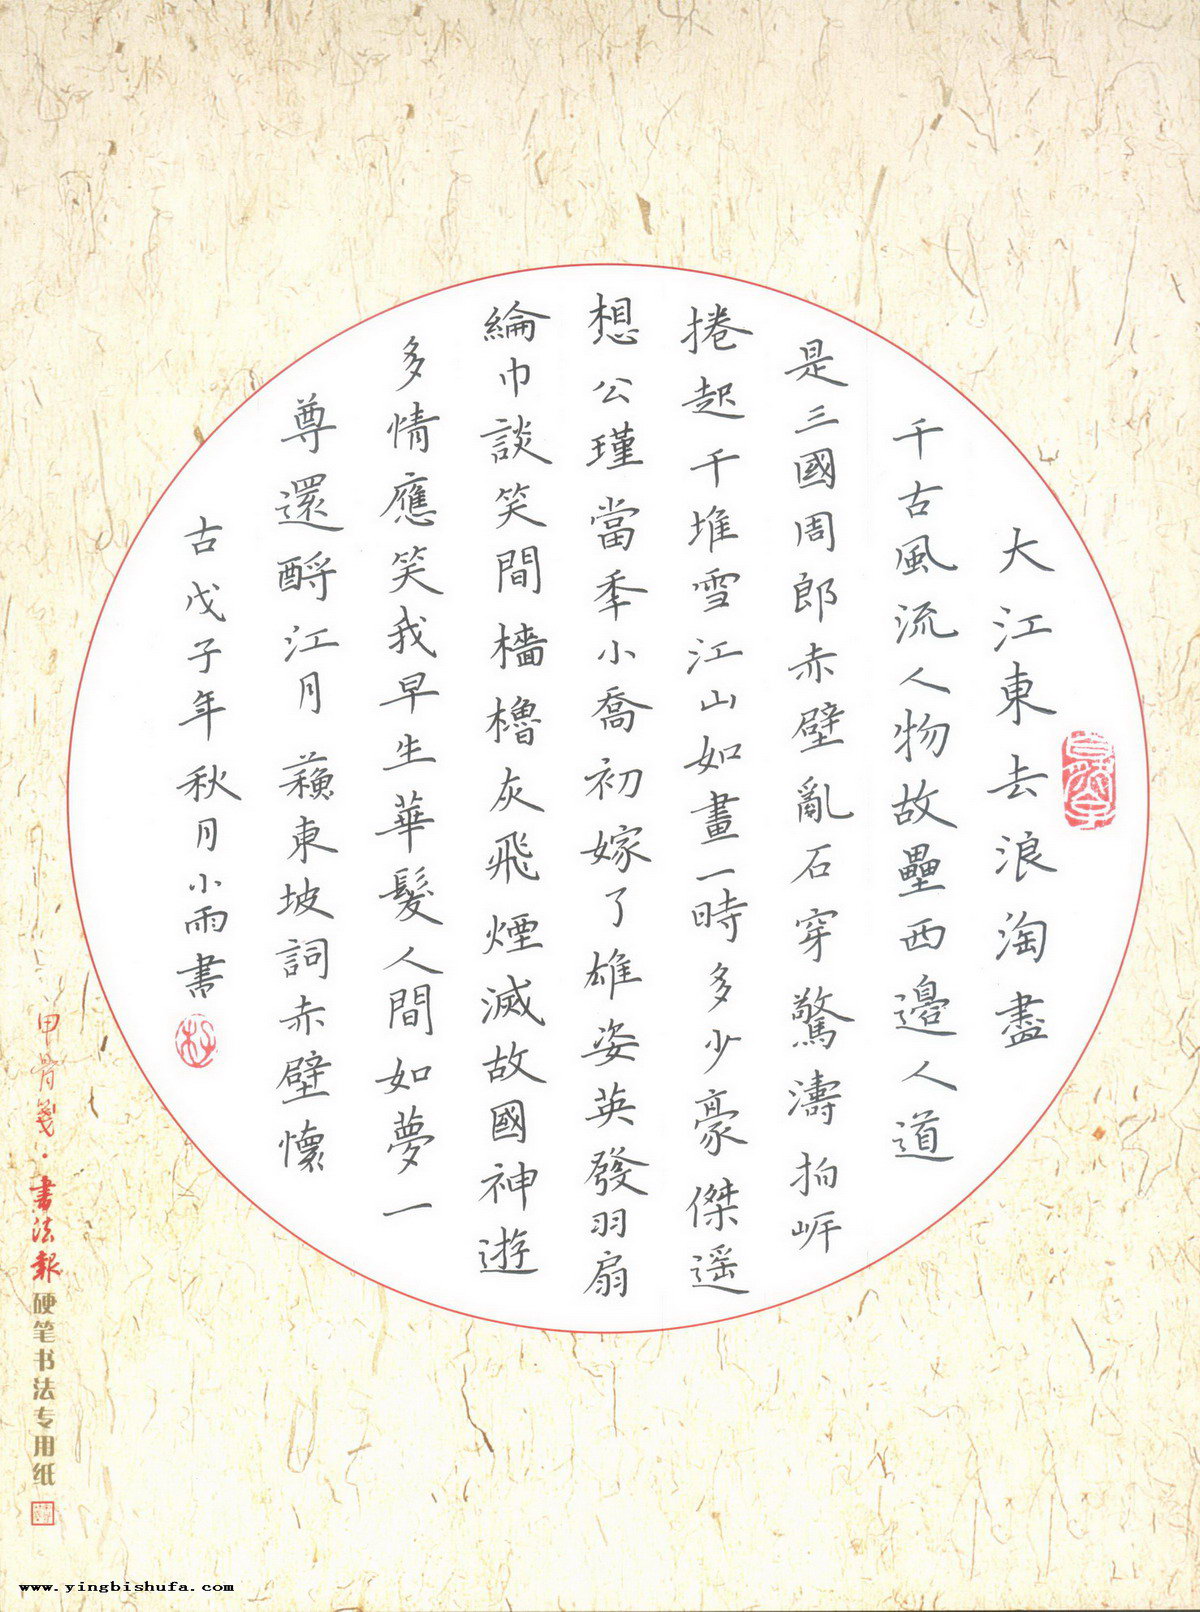 大江東去浪淘盡
千古風流人物故壘西邊人道
是三國周郎赤壁亂石穿驚濤拍岸
捲起千堆雪江山如畫一時多少豪傑遥
想公瑾當年小喬初嫁了雄姿英發羽扇
綸巾談笑間檣櫓灰飛煙滅故國神遊
多情應笑我早生華髮人間如夢一
尊還酹江月蘇東坡詞赤壁懷
古戊子年秋月小雨書
甲骨箋·書法報硬笔书法专用纸
www.yingbishufa.com